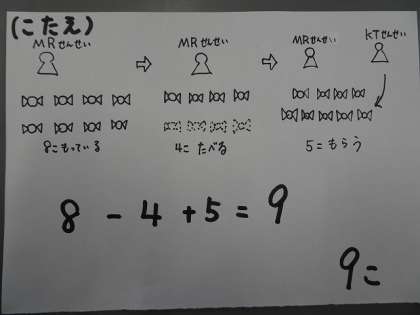 (こたえ)
MRせんせい
MRせんせい
MRせんせい
KTせんせい
8こもっている
4こ たべる
5こもらう
8 - 4 + 5 = 9
9こ